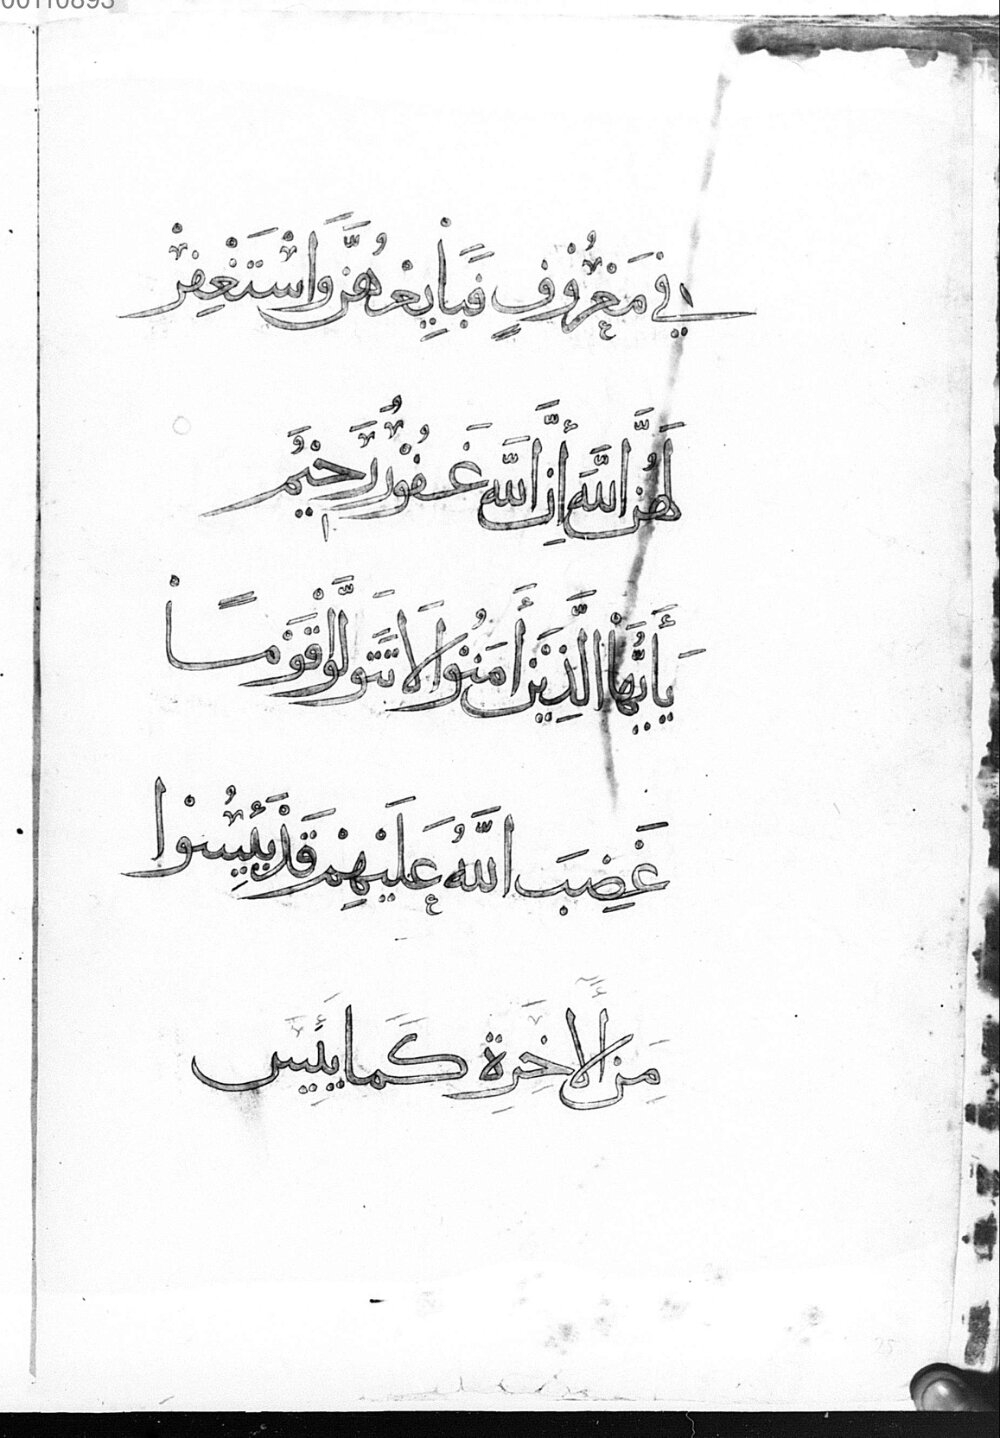 00110893
فِي مَعْرُوفٍ فَبَايِعْهُنَّ وَاسْتَغْفِرْ
لَهُنَّ اللَّهَ إِنَّ اللَّهَ غَفُورٌ رَّحِيمٌ
يَأَيُّهَا الَّذِينَ أَمَنُوا لَا تَتَوَلَّوْا قَوْمًا
غَضِبَ اللَّهُ عَلَيْهِمْ قَدْ يَئِسُوا
مِنَ الْأَخِرَةِ كَمَا يَئِسَ
25